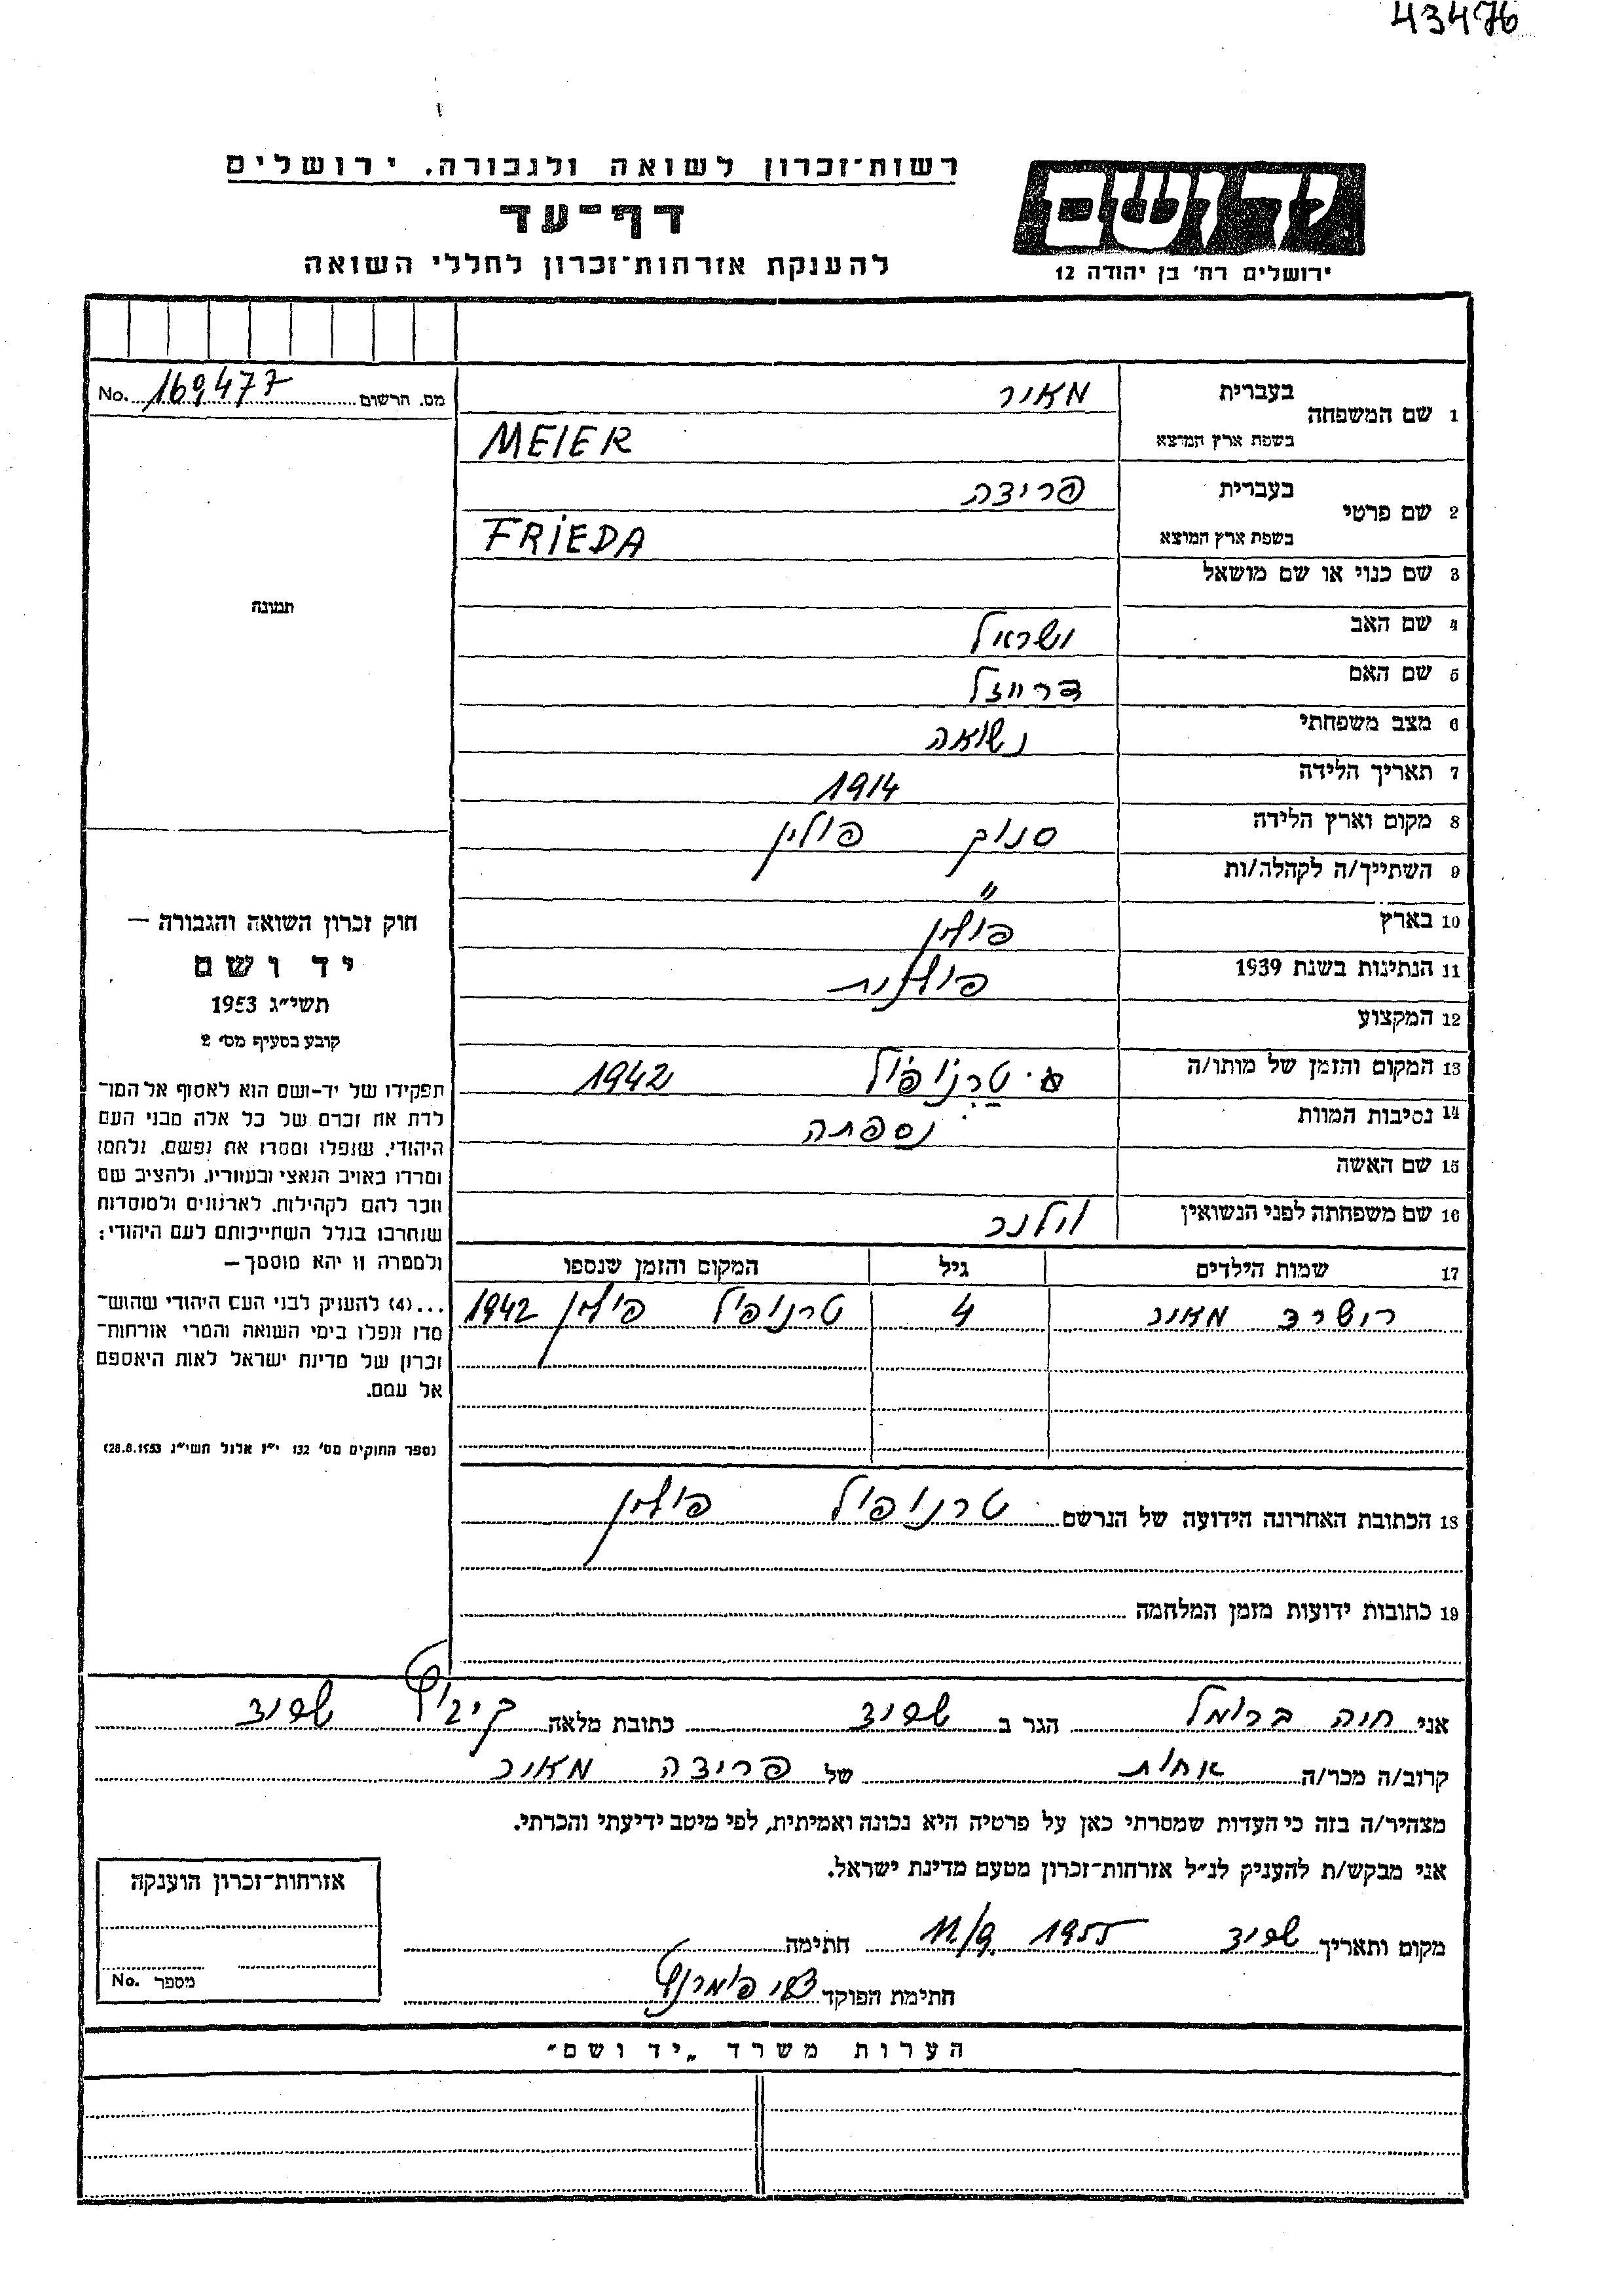 43476
רשות־זכרון לשואה ולגבורה, ירושלים
דף־עד
להענקת אזרחות־זכרון לחללי השואה
יד ושם
ירושלים רח' בן יהודה 12
מס. הרשום 169477 No.
1 שם המשפחה בעברית מאיר
בשפת ארץ המוצא MEIER
2 שם פרטי בעברית פרידה
בשפת ארץ המוצא FRIEDA
3 שם כנוי או שם מושאל
תמונה
4 שם האב ישראל
5 שם האם
6 מצב משפחתי נשואה
7 תאריך הלידה 1914
8 מקום וארץ הלידה סנוק פולין
9 השתייך/ה לקהלה/ות "
10 בארץ פולין
11 הנתינות בשנת 1939 פולנית
12 המקצוע
13 המקום והזמן של מותו/ה טרנופול 1942
14 נסיבות המוות נספתה
15 שם האשה
16 שם משפחתה לפני הנשואין
17 שמות הילדים גיל המקום והזמן שנספו
מאיר 4 טרנופול פולין 1942
18 הכתובת האחרונה הידועה של הנרשם טרנופול פולין
19 כתובות ידועות מזמן המלחמה
חוק זכרון השואה והגבורה —
יד ושם
תשי"ג 1953
קובע בסעיף מס' 2
תפקידו של יד-ושם הוא לאסוף אל המו־
לדת את זכרם של כל אלה מבני העם
היהודי, שנפלו ומסרו את נפשם, נלחמו
ומרדו באויב הנאצי ובעוזריו, ולהציב שם
וזכר להם לקהילות, לארגונים ולמוסדות
שנחרבו בגלל השתייכותם לעם היהודי;
ולמטרה זו יהא מוסמך —
...(4) להעניק לבני העם היהודי שהוש־
מדו ונפלו בימי השואה והמרי אזרחות־
זכרון של מדינת ישראל לאות היאספם
אל עמם.
(ספר החוקים מס' 132 י"ז אלול תשי"ג 28.8.1953)
אני חיה ברומל הגר ב שפיד כתובת מלאה קיבוץ שפיד
קרוב/ה מכר/ה אחות של פרידה מאיר
מצהיר/ה בזה כי העדות שמסרתי כאן על פרטיה היא נכונה ואמיתית, לפי מיטב ידיעתי והכרתי.
אני מבקש/ת להעניק לנ"ל אזרחות־זכרון מטעם מדינת ישראל.
מקום ותאריך שפיד 11/9 1955 חתימה
חתימת הפוקד
אזרחות־זכרון הוענקה
מספר No.
הערות משרד „יד ושם"